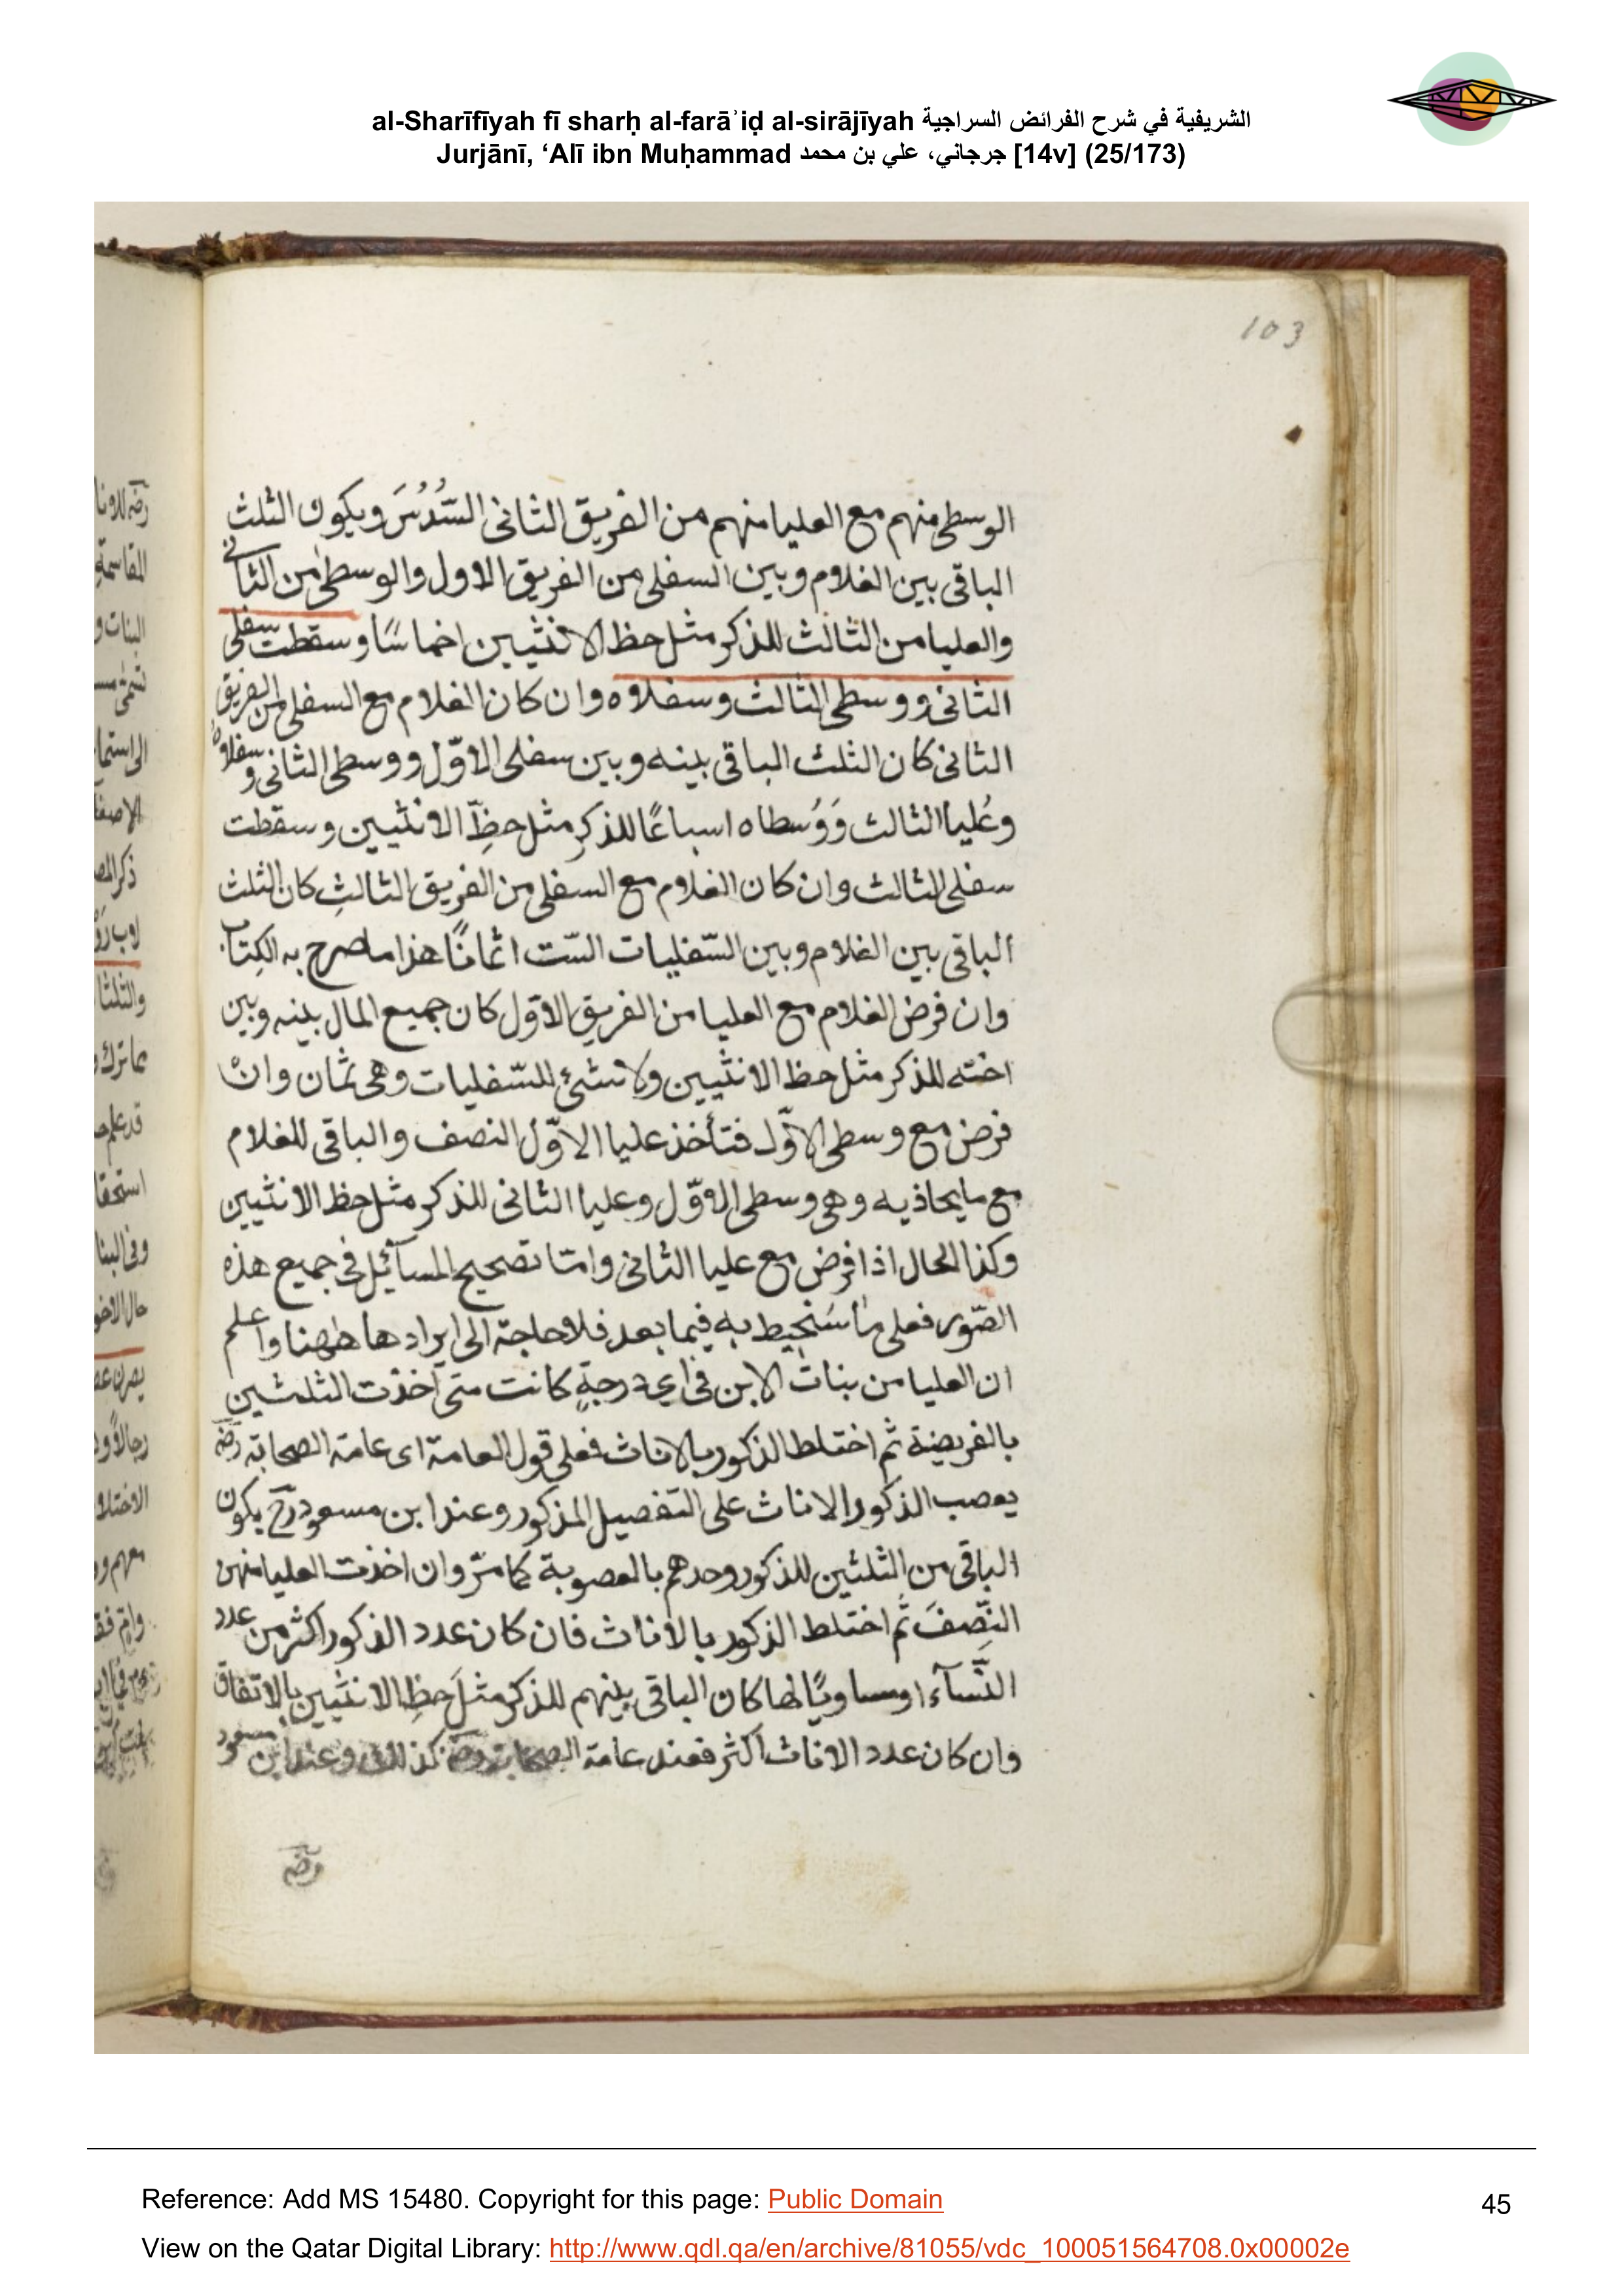 al-Sharīfīyah fī sharḥ al-farāʾiḍ al-sirājīyah الشريفية في شرح الفرائض السراجية
Jurjānī, ‘Alī ibn Muḥammad جرجاني، علي بن محمد [14v] (25/173)
103
الوسطى منهم مع العليا منهم من الفريق الثانى السُّدُسَ ويكون الثلث
الباقى بين الغلام وبين السفلى من الفريق الاول والوسطى من الثانى
والعليا من الثالث للذكر مثل حظ الانثيين اخماسًا وسقطت سفلى
الثانى ووسطى الثالث وسفلاه وان كان الغلام مع السفلى من الفريق
الثانى كان الثلث الباقى بينه وبين سفلى الاوّل ووسطى الثانى وسفلاه
وعُليا الثالث وَوُسطاه اسباعًا للذكرِ مثل حظِّ الانثيين وسقطت
سفلى الثالث وان كان الغلام مع السفلى من الفريق الثالثِ كان الثلث
الباقى بين الغلام وبين السّفليات السّت اثمانًا هذا ما صرح به الكِتاب
وان فرض الغلام مع العليا من الفريق الاوّل كان جميع المال بينه وبين
اخته للذكر مثل حظ الانثيين ولا شئ للسّفليات وهى ثمان وانْ
فرض مع وسطى الاوّل فتأخذ عليا الاوّل النصف والباقى للغلام
مع ما يحاذيه وهى وسطى الاوّل وعليا الثانى للذكر مثل حظ الانثيين
وكذا الحال اذا فرض مع عليا الثانى وامّا تصحيح المسآئل فى جميع هذه
الصّور فعلى ما سَتُحيط به فيما بعد فلا حاجة الى ايرادها ههنا واعلم
ان العليا من بنات الابن فى اى درجةٍ كانت متى اخذت الثلثين
بالفريضة ثم اختلط الذكور بالاناث فعلى قول العامة اى عامة الصحابة رضه
يعصب الذكور الاناث على التفصيل المذكور وعند ابن مسعود رح يكون
الباقى من الثلثين للذكور وحدهم بالعصوبة كما مرّ وان اخذت العليا منهن
النِّصفَ ثُم اختلط الذكور بالاناث فان كان عدد الذكور اكثر من عدد
النِّسآء او مساويًا لها كان الباقى بينهم للذكر مثلَ حظِ الانثيين بالاتفاق
وان كان عدد الاناث اكثر فعند عامة الصحابة رضه كذلك وعند ابن مسعود
رضه
Reference: Add MS 15480. Copyright for this page: Public Domain
45
View on the Qatar Digital Library: http://www.qdl.qa/en/archive/81055/vdc_100051564708.0x00002e